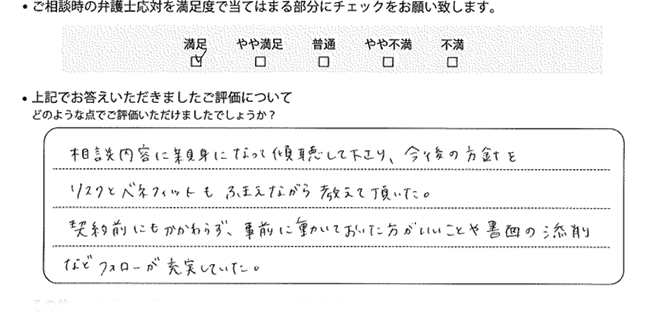 • ご相談時の弁護士応対を満足度で当てはまる部分にチェックをお願い致します。
満足 やや満足 普通 やや不満 不満
• 上記でお答えいただきましたご評価について
どのような点でご評価いただけましたでしょうか？
相談内容に親身になって傾聴して下さり、今後の方針を
リスクとベネフィットもふまえながら教えて頂いた。
契約前にもかかわらず、事前に動いておいた方がいいことや書面の添削
などフォローが充実していた。